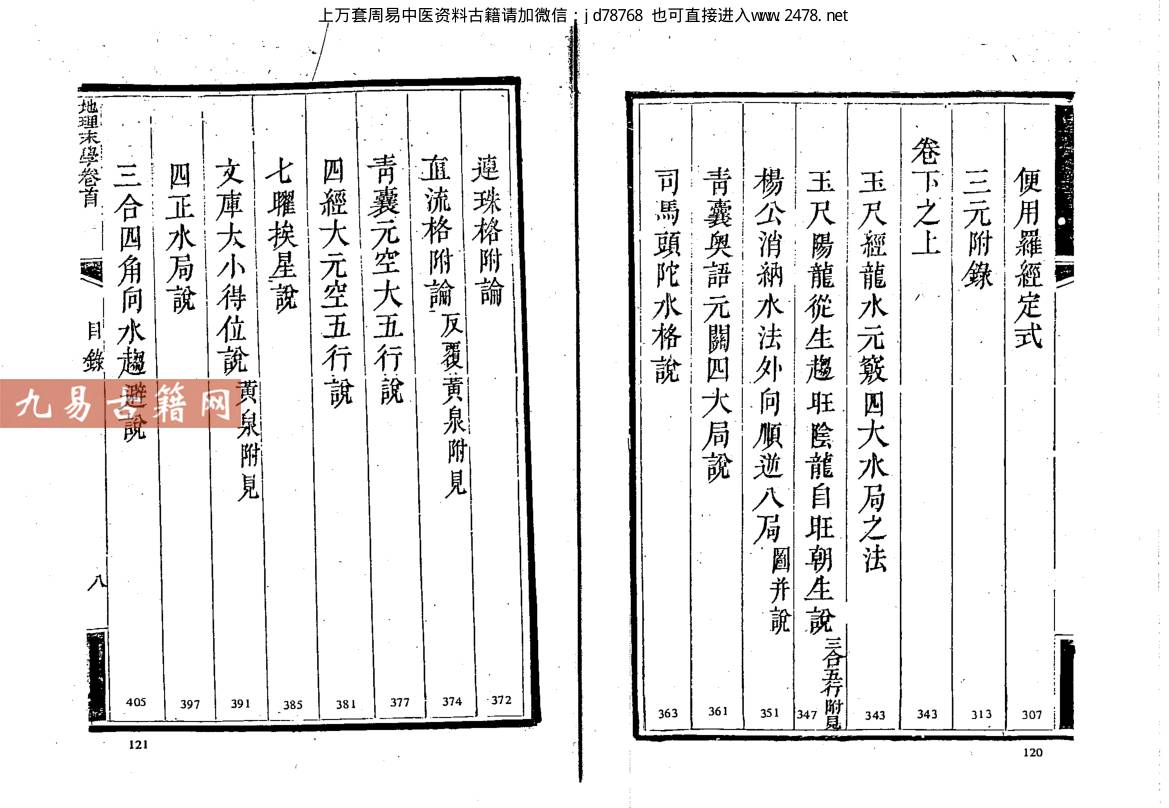 上万套周易中医资料古籍请加微信：jd78768 也可直接进入www.2478.net
便用羅經定式 307
三元附錄 313
卷下之上 343
玉尺經龍水元竅四大水局之法 343
玉尺陽龍從生趨旺陰龍自旺朝生說 三合五行附見 347
楊公消納水法外向順逆八局 圖并說 351
青囊奥語元關四大局說 361
司馬頭陀水格說 363
120
連珠格附論 372
直流格附論 反覆黃泉附見 374
青囊元空大五行說 377
四經大元空五行說 381
七曜挨星說 385
文庫大小得位說 黃泉附見 391
四正水局說 397
三合四角向水趨避說 405
地理末學卷首
目錄
八
121
九易古籍网